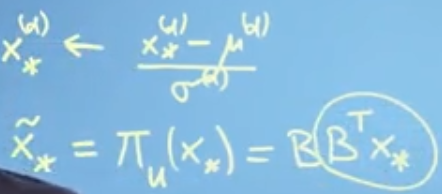 x_*^(d) ← (x_*^(d) − μ^(d)) / σ^(d)
x̃_* = π_u(x_*) = B Bᵀ x_*